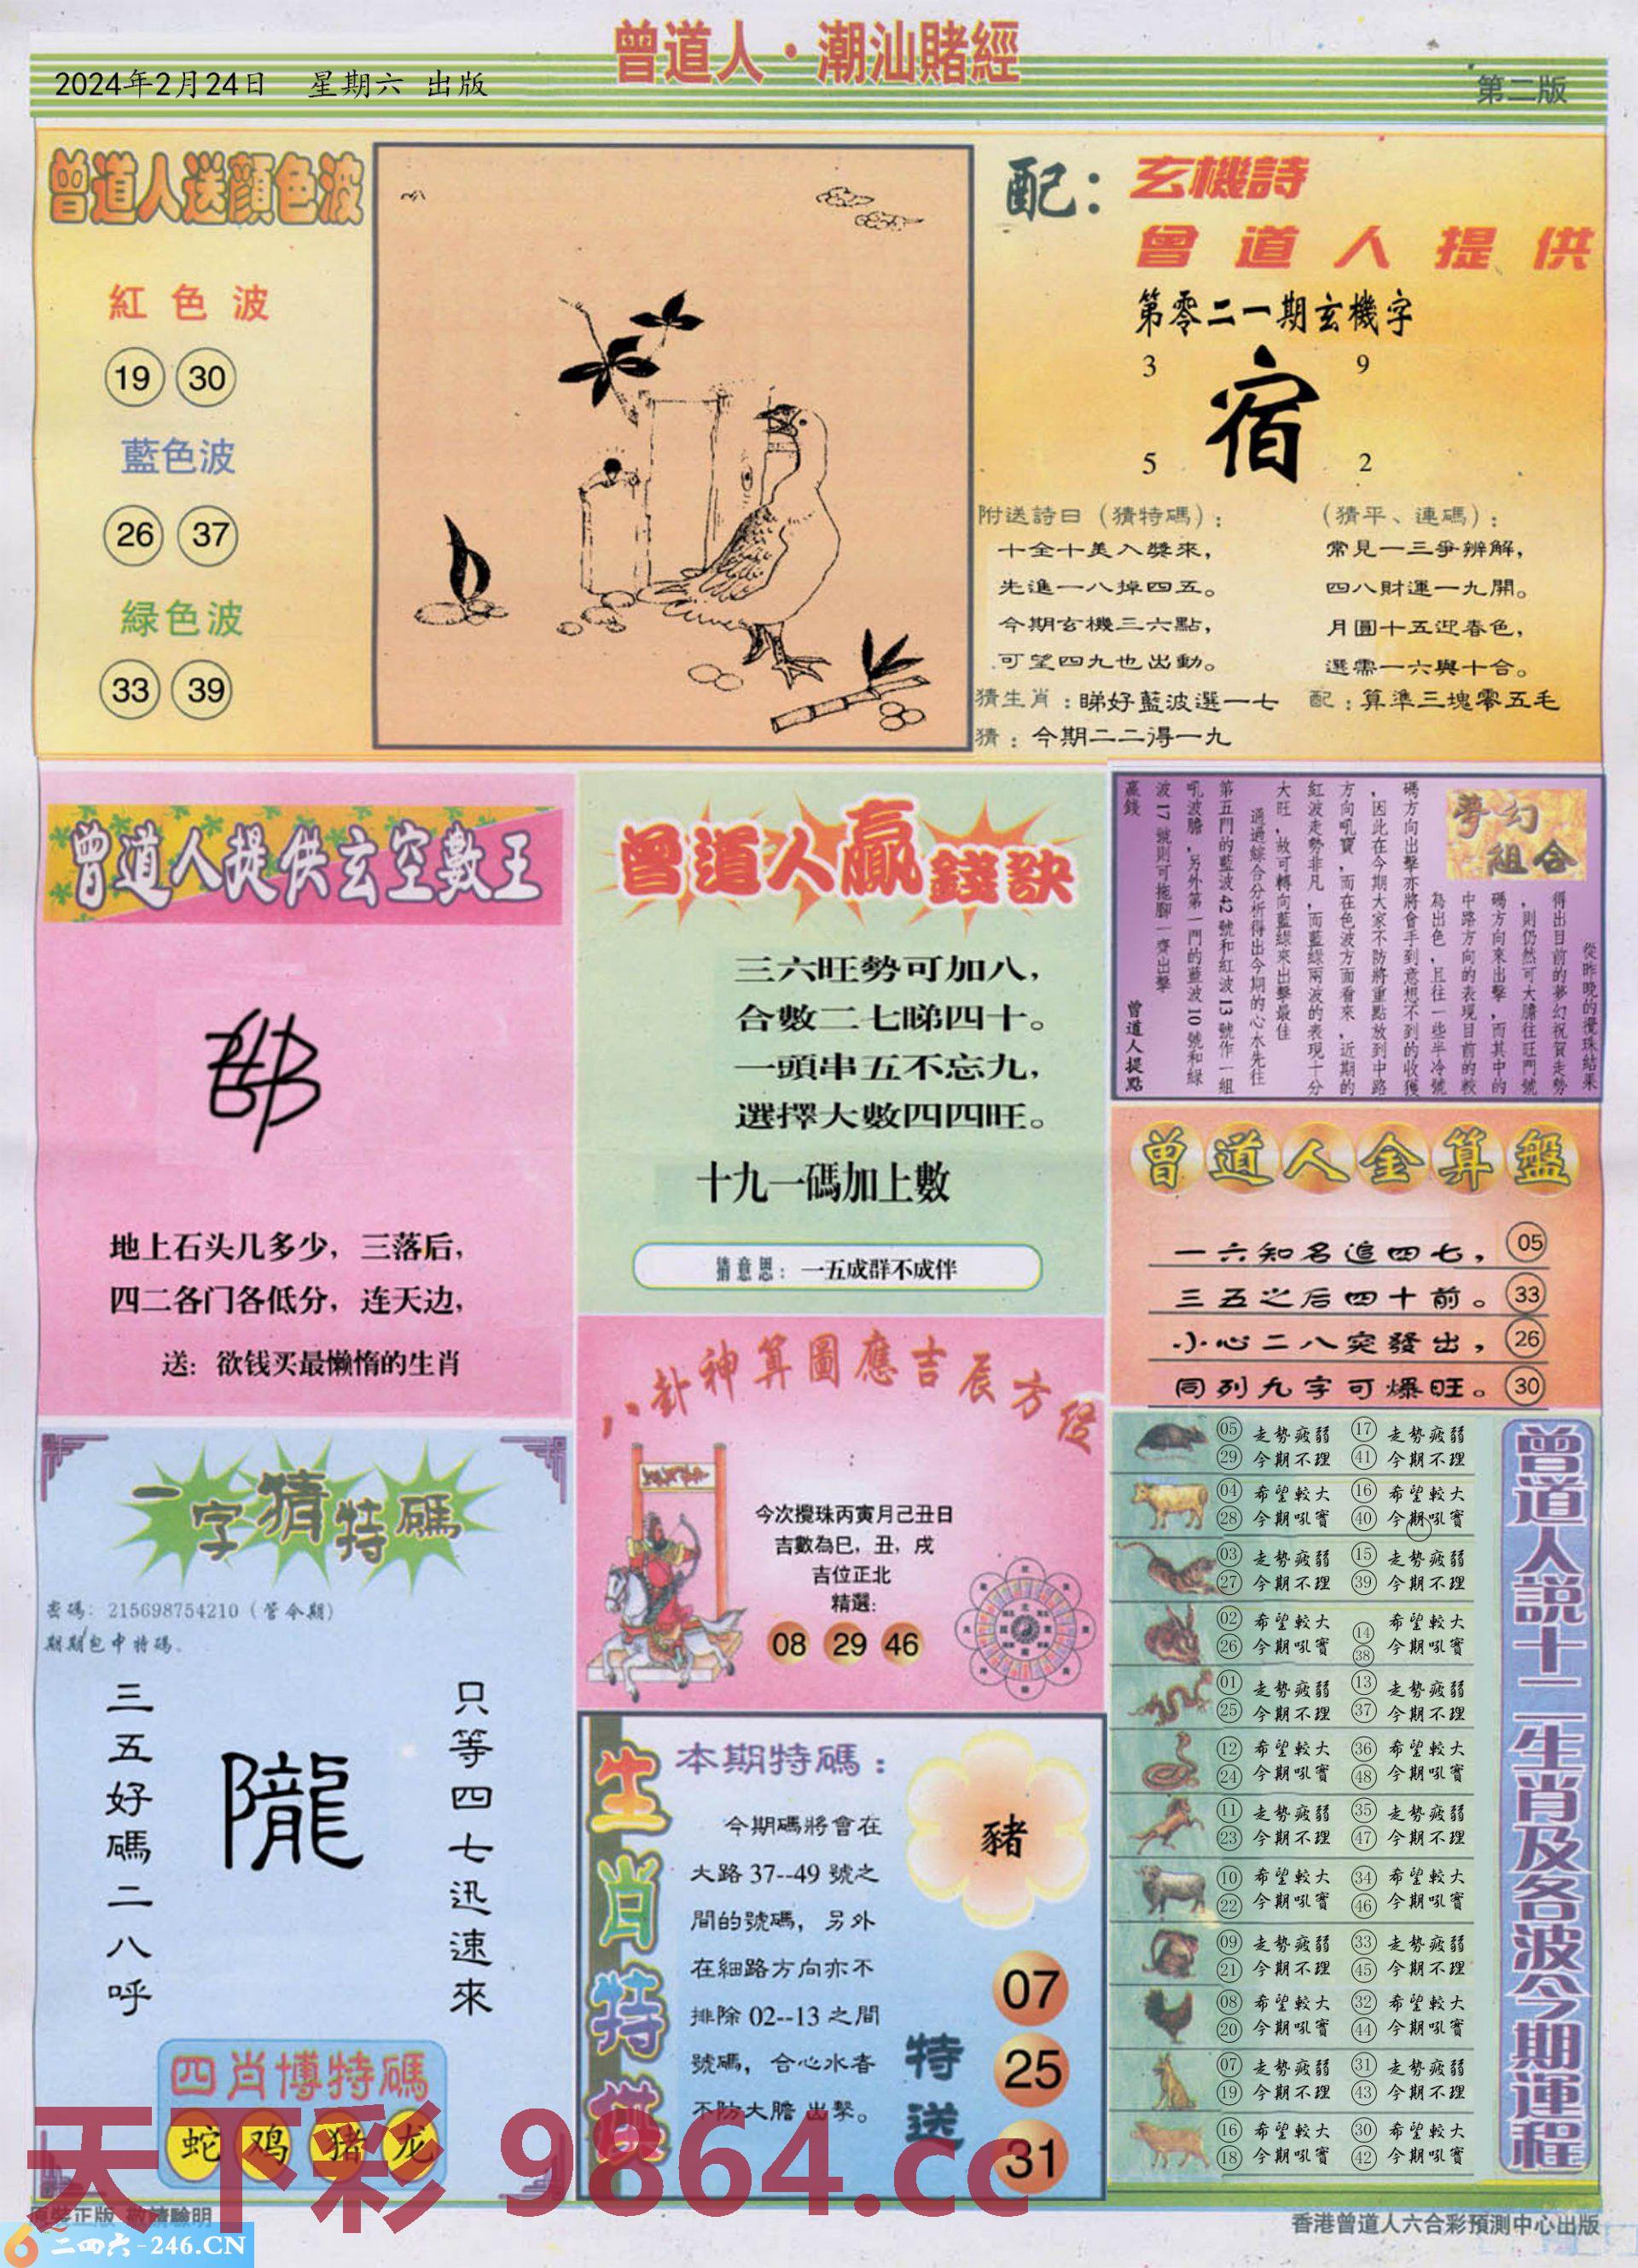 曾道人·潮汕賭經
2024年2月24日 星期六 出版
第二版
曾道人送顔色波
紅色波
19 30
藍色波
26 37
緑色波
33 39
配：玄機詩
曾道人提供
第零二一期玄機字
3 9
宿
5 2
附送詩日（猜特碼）：
十全十美入獎來，
先進一八掉四五。
今期玄機三六點，
可望四九也出動。
（猜平、連碼）：
常見一三爭辨解，
四八財運一九開。
月圓十五迎春色，
選需一六與十合。
猜生肖：睇好藍波選一七
配：算準三塊零五毛
猜：今期二二得一九
曾道人提供玄空數王
地上石头几多少，三落后，
四二各门各低分，连天边，
送：欲钱买最懒惰的生肖
曾道人贏錢訣
三六旺勢可加八，
合數二七睇四十。
一頭串五不忘九，
選擇大數四四旺。
十九一碼加上數
猜意思：一五成群不成伴
夢幻組合
從昨晚的攪珠結果
得出目前的夢幻祝賀走勢
，則仍然可大膽往旺門號
碼方向來出擊，而其中的
中路方向的表現目前的較
為出色，且往一些半冷號
碼方向出擊亦將會手到意想不到的收獲
，因此在今期大家不防將重點放到中路
方向吼寶，而在色波方面看來，近期的
紅波走勢非凡，而藍綠兩波的表現十分
大旺，故可轉向藍綠來出擊最佳
通過綜合分析得出今期的心水先往
第五門的藍波42號和紅波13號作一組
吼波膽，另外第一門的藍波10號和綠
波17號則可拖腳一齊出擊
贏錢
曾道人提點
曾道人金算盤
一六知名追四七， 05
三五之后四十前。 33
小心二八突發出， 26
同列九字可爆旺。 30
一字猜特碼
密碼：215698754210（管今期）
期期包中特碼。
三五好碼二八呼
隴
只等四七迅速來
四肖博特碼
蛇 鸡 猪 龙
八卦神算圖應吉辰方位
今次攪珠丙寅月己丑日
吉數為巳，丑，戌
吉位正北
精選：
08 29 46
生肖特供
本期特碼：
今期碼將會在
大路37--49號之
間的號碼，另外
在細路方向亦不
排除02--13之間
號碼，合心水者
不防大膽出擊。
豬
特送
07
25
31
05 走勢疲弱 17 走勢疲弱
29 今期不理 41 今期不理
04 希望較大 16 希望較大
28 今期吼實 40 今期吼實
03 走勢疲弱 15 走勢疲弱
27 今期不理 39 今期不理
02 希望較大 14 希望較大
26 今期吼實 38 今期吼實
01 走勢疲弱 13 走勢疲弱
25 今期不理 37 今期不理
12 希望較大 36 希望較大
24 今期吼實 48 今期吼實
11 走勢疲弱 35 走勢疲弱
23 今期不理 47 今期不理
10 希望較大 34 希望較大
22 今期吼實 46 今期吼實
09 走勢疲弱 33 走勢疲弱
21 今期不理 45 今期不理
08 希望較大 32 希望較大
20 今期吼實 44 今期吼實
07 走勢疲弱 31 走勢疲弱
19 今期不理 43 今期不理
16 希望較大 30 希望較大
18 今期吼實 42 今期吼實
曾道人說十二生肖及各波今期運程
天下彩 9864.cc
原裝正版 敬請驗明
二四六-246.CN
香港曾道人六合彩預測中心出版